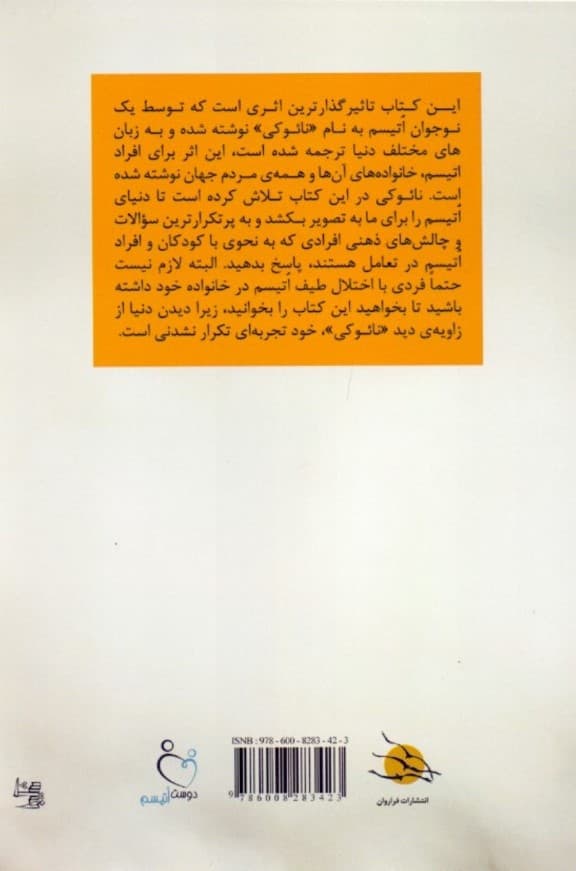 این کتاب تاثیرگذارترین اثری است که توسط یک
نوجوان اُتیسم به نام «نائوکی» نوشته شده و به زبان
های مختلف دنیا ترجمه شده است، این اثر برای افراد
اتیسم، خانواده‌های آن‌ها و همه‌ی مردم جهان نوشته شده
است. نائوکی در این کتاب تلاش کرده است تا دنیای
اُتیسم را برای ما به تصویر بکشد و به پرتکرارترین سؤالات
و چالش‌های ذهنی افرادی که به نحوی با کودکان و افراد
اُتیسم در تعامل هستند، پاسخ بدهید. البته لازم نیست
حتماً فردی با اختلال طیف اُتیسم در خانواده خود داشته
باشید تا بخواهید این کتاب را بخوانید، زیرا دیدن دنیا از
زاویه‌ی دید «نائوکی»، خود تجربه‌ای تکرار نشدنی است.
ISNB : 978 - 600 - 8283 - 42 - 3
9 786008 283423
دوست اُتیسم
انتشارات فراروان